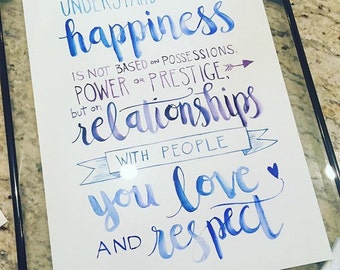 UNDERSTAND
happiness
IS NOT BASED ON POSSESSIONS,
POWER OR PRESTIGE,
but on
relationships
WITH PEOPLE
you love
AND respect